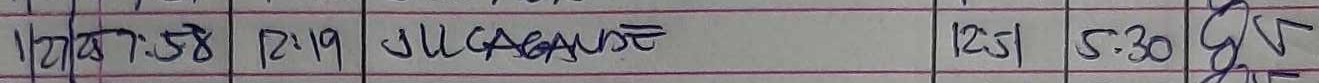 1/27/25 7:58 12:19 JLLCAGANDE 12:51 5:30